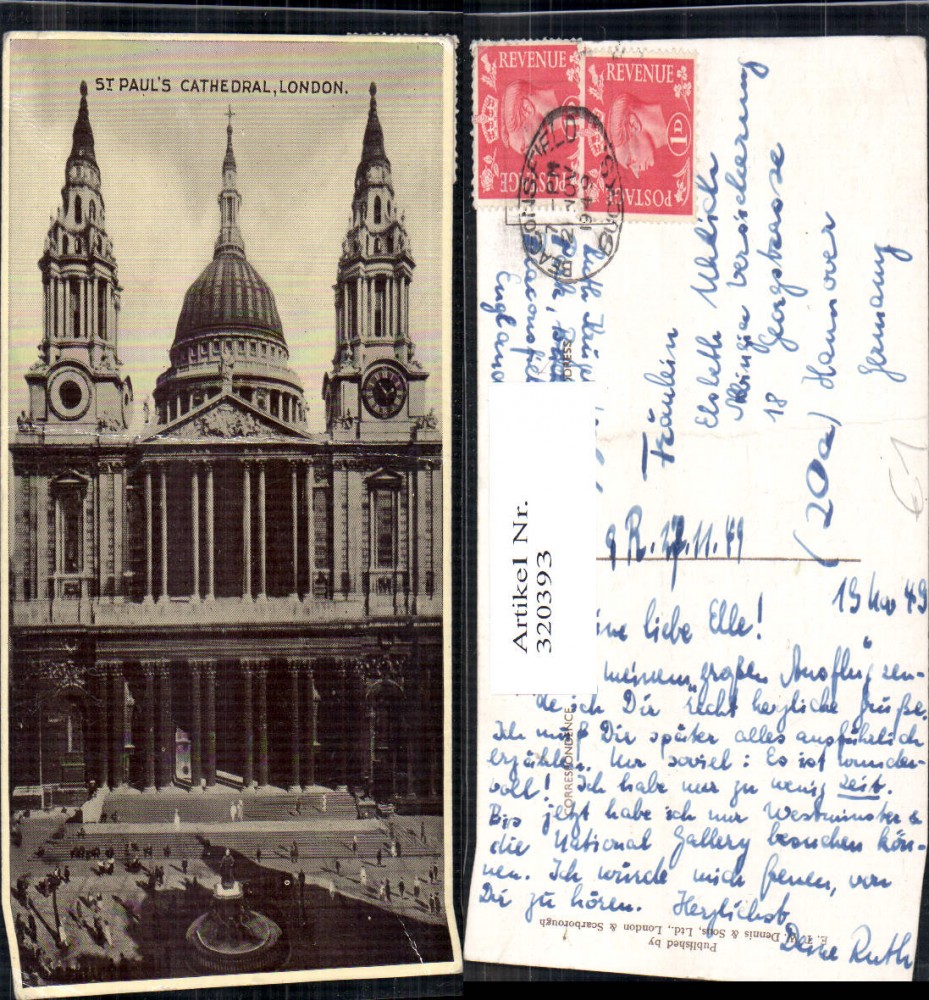 ST PAUL'S CATHEDRAL, LONDON.
REVENUE
POSTAGE
REVENUE
1D
POSTAGE
BEACONSFIELD
BUCKS
7 - PM
21 NOV
1949
Ruth
Beaconsfield
England
Fräulein
Elsbeth
18
(20a) Hannover
Germany
61
ADDRESS
R. 27.11.49
Artikel Nr.
320393
19 Nov 49
ine liebe Elle!
meinem „großen Ausflug" sen-
de ich Dir recht herzliche Grüße.
Ich muß Dir später alles ausführlich
erzählen. Nur soviel: Es ist wunder-
voll! Ich habe nur zu wenig Zeit.
Bis jetzt habe ich nur Westminster &
die National Gallery besuchen kön-
nen. Ich würde mich freuen, von
Dir zu hören. Herzlichst
Deine Ruth
CORRESPONDENCE
Published by
E. T. W. Dennis & Sons, Ltd., London & Scarborough